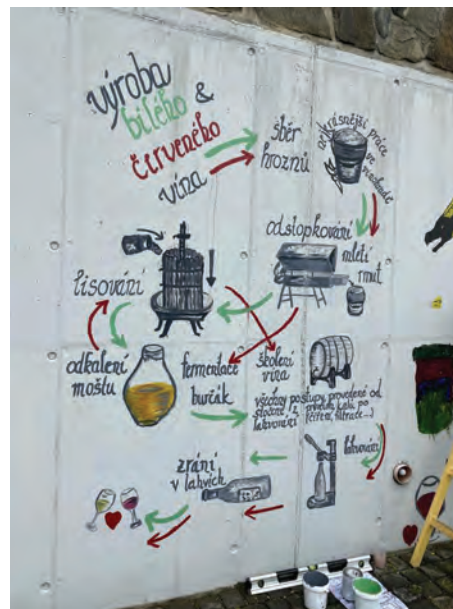 výroba
bílého &
červeného
vína
sběr
hroznů
nejkrásnější práce
ve vinohradě
odstopkování
mletí
rmut
lisování
odkalení
moštu
fermentace
burčák
školení
vína
všechny postupy provedené od
prvního
stočení z kalů po
lahvování (čiření, filtrace...)
lahvování
zrání
v lahvích